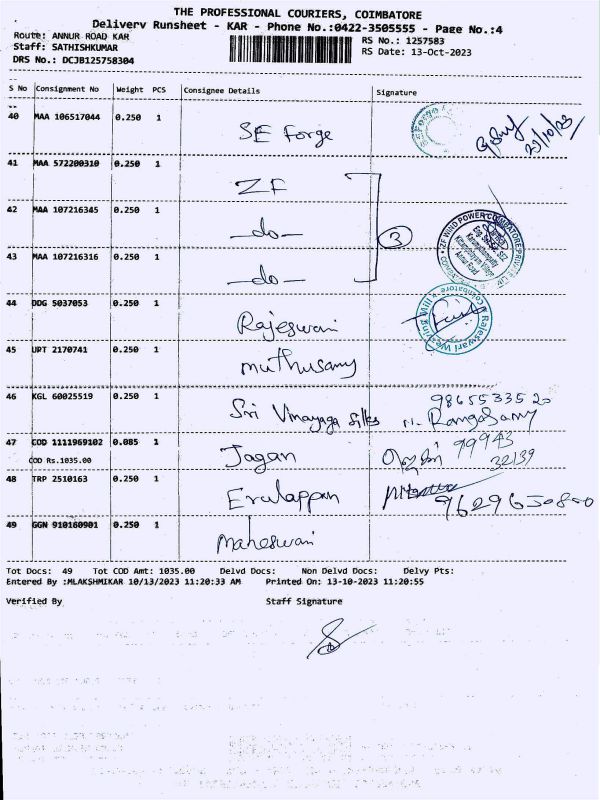 THE PROFESSIONAL COURIERS, COIMBATORE
Delivery Runsheet - KAR - Phone No.:0422-3505555 - Page No.:4
Route: ANNUR ROAD KAR
RS No.: 1257583
Staff: SATHISHKUMAR
RS Date: 13-Oct-2023
DRS No.: DCJB125758304
S No Consignment No Weight PCS Consignee Details Signature
40 MAA 106517044 0.250 1 SE Forge
41 MAA 572200310 0.250 1 ZF
42 MAA 107216345 0.250 1 -do- 3
43 MAA 107216316 0.250 1 -do-
ZF WIND POWER COIMBATORE
44 DDG 5037053 0.250 1 Rajeswari
Rajeswari Weaving Mill Coimbatore
45 UPT 2170741 0.250 1 muthusamy
46 KGL 60025519 0.250 1 Sri Vinayaga silks 9865533520
Rangasamy
47 COD 1111969102 0.085 1 Jagan 99943
32139
COD Rs.1035.00
48 TRP 2510163 0.250 1 Erulappan 9629650800
49 GGN 910160901 0.250 1 Maheswari
Tot Docs: 49 Tot COD Amt: 1035.00 Delvd Docs: Non Delvd Docs: Delvy Pts:
Entered By :MLAKSHMIKAR 10/13/2023 11:20:33 AM Printed On: 13-10-2023 11:20:55
Verified By Staff Signature